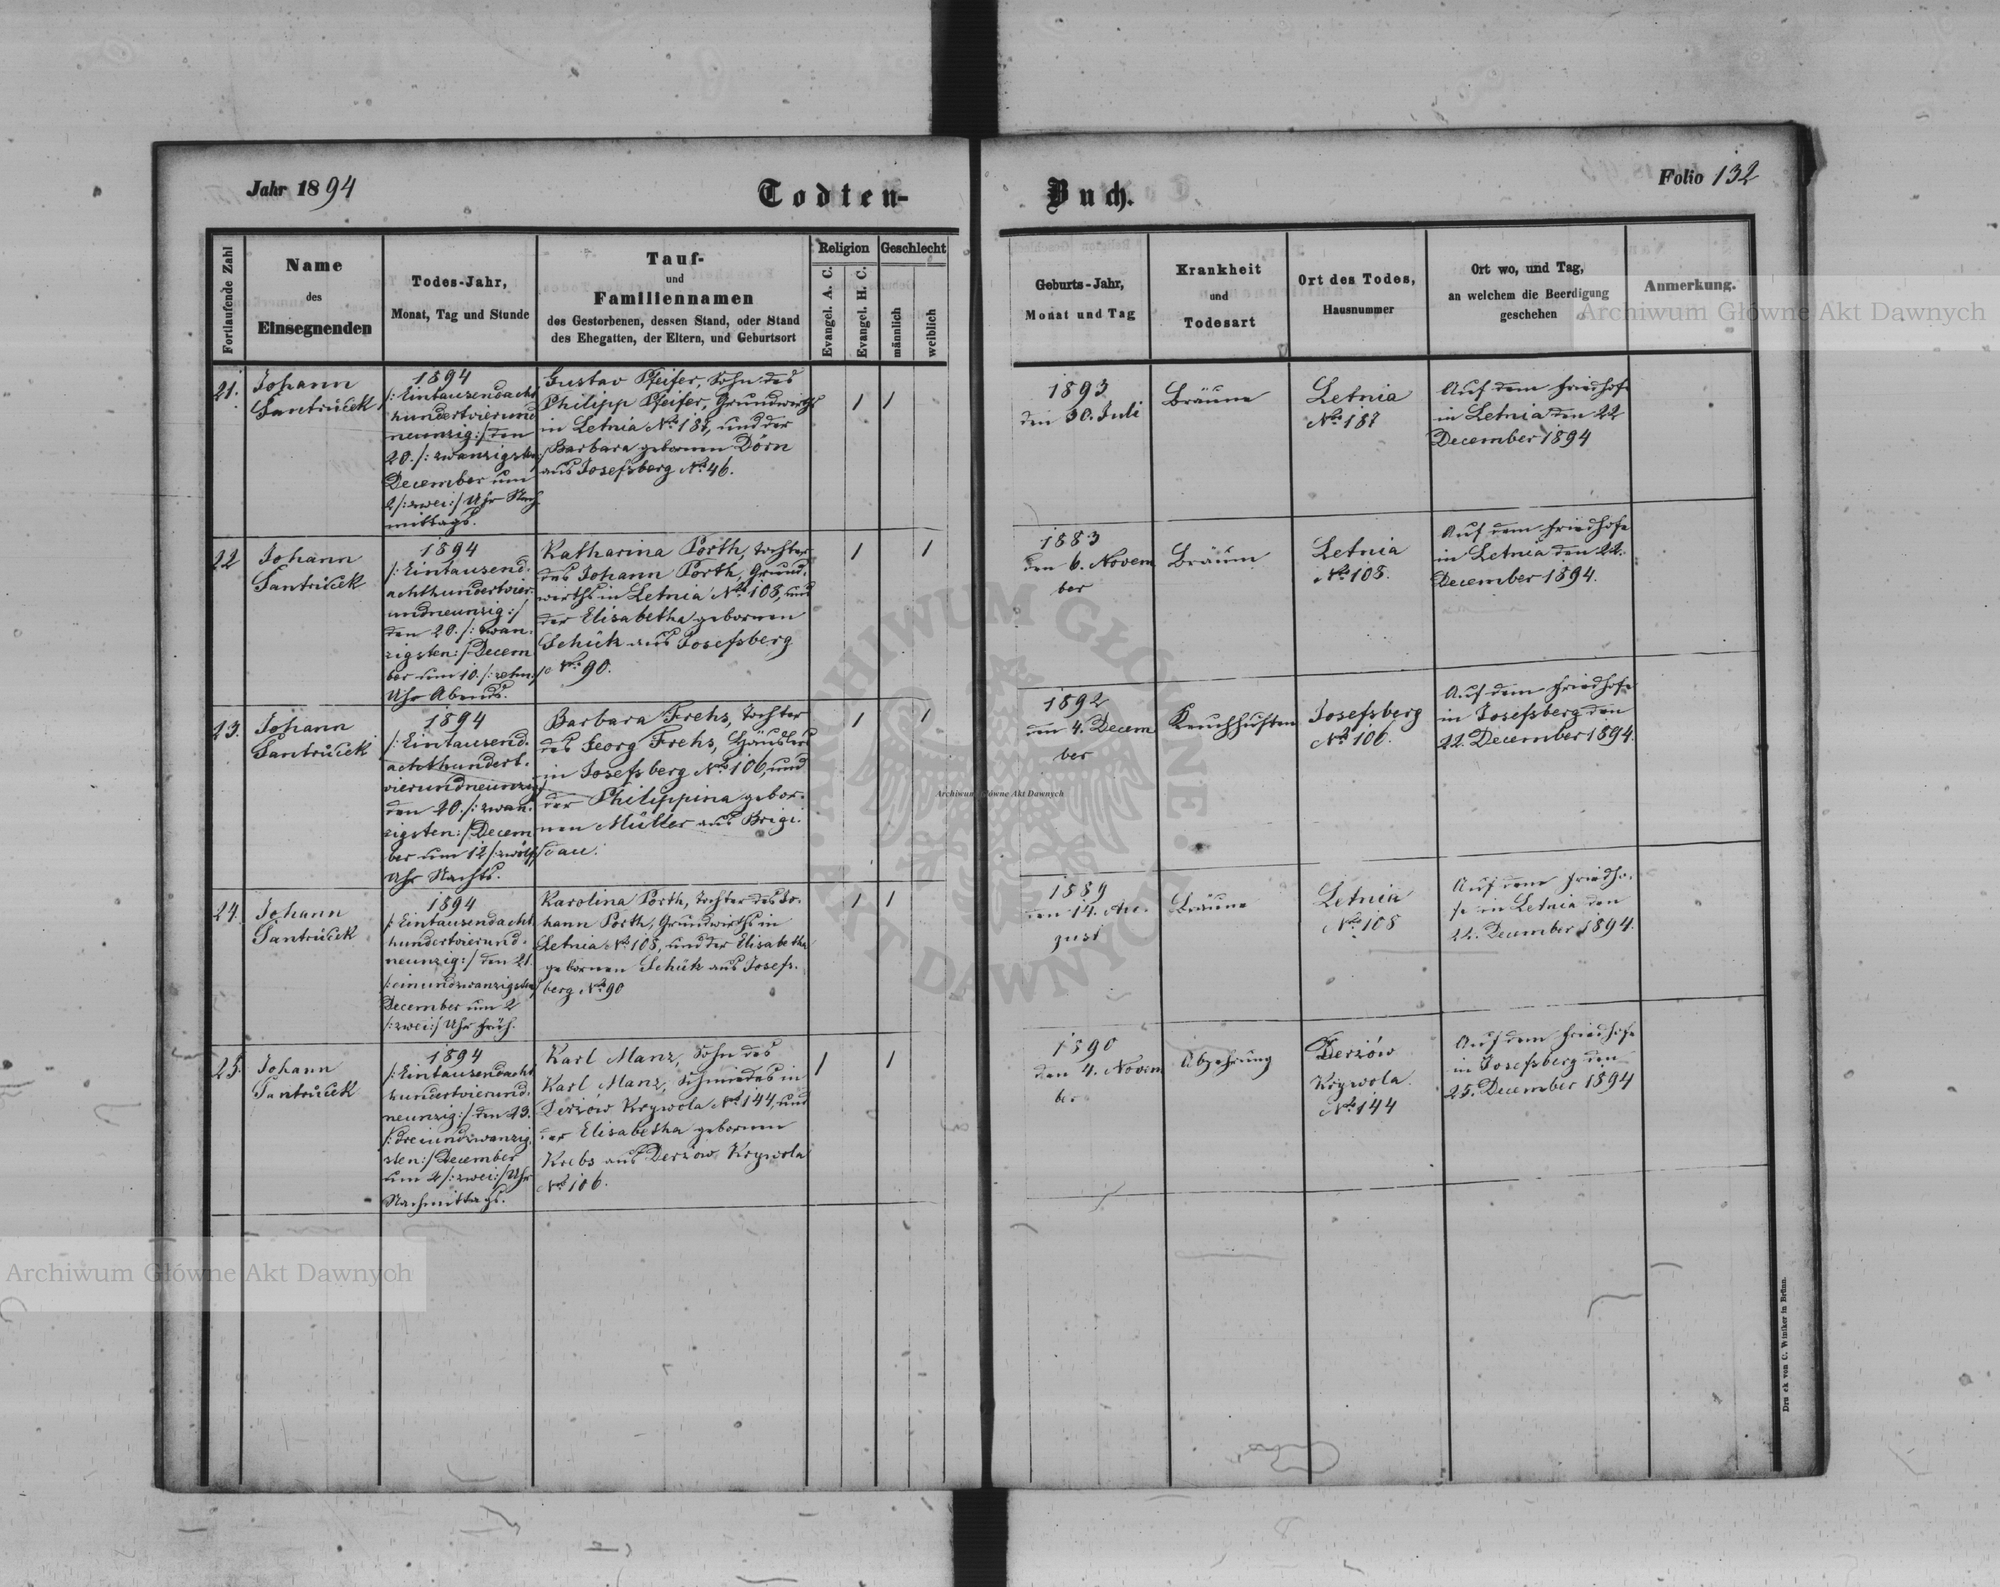 Jahr 1894
Todten-
Buch.
Folio 132
Fortlaufende Zahl
Name
des
Einsegnenden
Todes-Jahr,
Monat, Tag und Stunde
Tauf-
und
Familiennamen
des Gestorbenen, dessen Stand, oder Stand
des Ehegatten, der Eltern, und Geburtsort
Religion
Evangel. A. C.
Evangel. H. C.
Geschlecht
männlich
weiblich
Geburts-Jahr,
Monat und Tag
Krankheit
und
Todesart
Ort des Todes,
Hausnummer
Ort wo, und Tag,
an welchem die Beerdigung
geschehen
Anmerkung.
21.
Johann
Santrůček
1894
/: Eintausendacht
hundertvierund
neunzig :/ den
20. /: zwanzigsten :/
December um
2 /: zwei :/ Uhr Nach
mittags.
Gustav Pfeifer, Sohn des
Philipp Pfeifer, Grundwirths
in Letnia No 187, und der
Barbara gebornen Dörn
aus Josefsberg No 46.
1
1
1893
den 30. Juli
Bräune
Letnia
No 187
Auf dem Friedhofe
in Letnia den 22
December 1894
22
Johann
Santrůček
1894
/: Eintausend-
achthundertvier-
undneunzig :/
den 20. /: zwan-
zigsten :/ Decem
ber um 10. /: zehn :/
Uhr Abends.
Katharina Porth, Tochter
des Johann Porth, Grund-
wirths in Letnia No 108, und
der Elisabetha gebornen
Schük aus Josefsberg
No 90.
1
1
1883
den 6. Novem
ber
Bräun
Letnia
No 108.
Auf dem Friedhofe
in Letnia den 22.
December 1894.
23.
Johann
Santrůček
1894
/: Eintausend-
achthundert-
vierundneunzig
den 20. /: zwan-
zigsten :/ Decem
ber um 12 /: zwölf :/
Uhr Nachts.
Barbara Frehs, Tochter
des Georg Frehs, Häuslers
in Josefsberg No 106, und
der Philippina gebor-
nen Müller aus Brigi-
dau.
1
1
1892
den 4. Decem
ber
Keuchhusten
Josefsberg
No 106.
Auf dem Friedhofe
in Josefsberg den
22. December 1894.
24.
Johann
Santrůček
1894
/: Eintausendacht
hundertvierund-
neunzig :/ den 21.
/: einundzwanzigsten :/
December um 2
/: zwei :/ Uhr früh.
Karolina Porth, Tochter des Jo-
hann Porth, Grundwirths in
Letnia No 108, und der Elisabetha
gebornen Schük aus Josefs-
berg No 90
1
1
1889
den 14. Au-
gust
Bräune
Letnia
No 108
Auf dem Friedho-
fe in Letnia den
22. December 1894.
25.
Johann
Santrůček
1894
/: Eintausendacht
hundertvierund-
neunzig :/ den 23.
/: dreiundzwanzig-
sten :/ December
um 2 /: zwei :/ Uhr
Nachmittags.
Karl Manz, Sohn des
Karl Manz, Schmiedes in
Derżów Krywola No 144, und
der Elisabetha gebornen
Krebs aus Derżow Krywola
No 106.
1
1
1890
den 4. Novem
ber
Abzehrung
Derżów
Krywola
No 144
Auf dem Friedhofe
in Josefsberg den
25. December 1894
Druck von C. Winiker in Brünn.
Archiwum Główne Akt Dawnych
Archiwum Główne Akt Dawnych
Archiwum Główne Akt Dawnych
ARCHIWUM GŁÓWNE AKT DAWNYCH